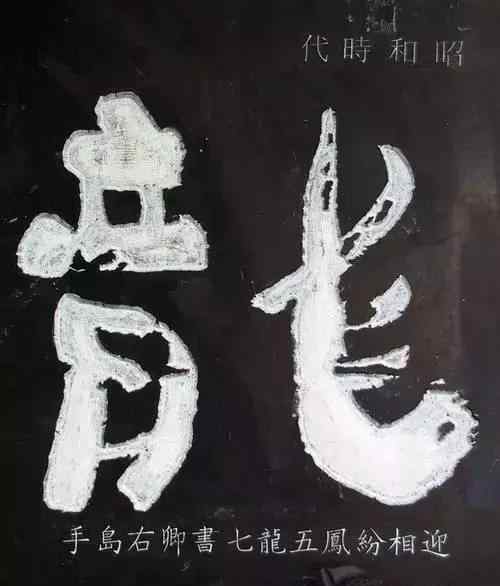 昭和時代
龍
迎相紛鳳五龍七書卿右島手